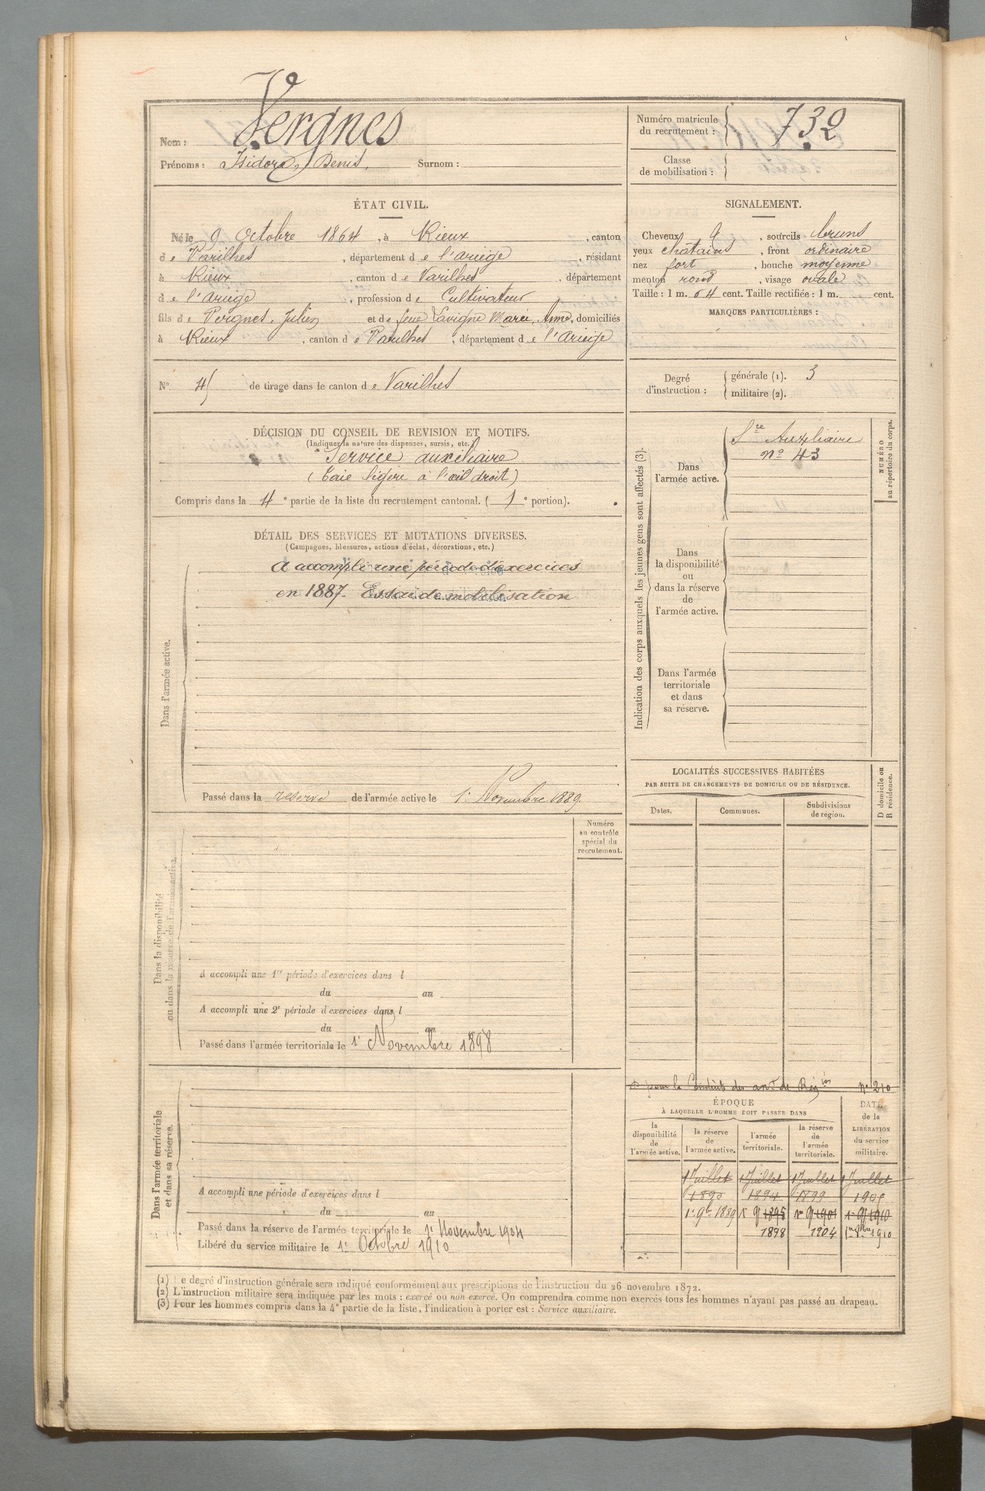 Nom : Vergnes
Prénoms : Isidore, Denis. Surnom :
Numéro matricule du recrutement : 732
Classe de mobilisation :
ÉTAT CIVIL.
Né le 9 Octobre 1864, à Rieux, canton
de Varilhes, département de l'ariège, résidant
à Rieux, canton de Varilhes, département
de l'ariège, profession de Cultivateur
fils de Vergnes, Julien et de feue Lavigne Marie, Anne, domiciliés
à Rieux, canton de Varilhes, département de l'Ariège
SIGNALEMENT.
Cheveux, sourcils bruns
yeux chatains, front ordinaire
nez fort, bouche moyenne
menton rond, visage ovale
Taille : 1 m. 64 cent. Taille rectifiée : 1 m. cent.
MARQUES PARTICULIÈRES :
N° 45 de tirage dans le canton de Varilhes
Degré d'instruction : générale (1). 3
militaire (2).
DÉCISION DU CONSEIL DE REVISION ET MOTIFS.
(Indiquer la nature des dispense, sursis, etc.)
Service auxiliaire
(Taie légère à l'œil droit)
Compris dans la 4e partie de la liste du recrutement cantonal. ( 1e portion).
DÉTAIL DES SERVICES ET MUTATIONS DIVERSES.
(Campagnes, blessures, actions d'éclat, décorations, etc.)
Dans l'armée active.
A accompli une période d'exercices
en 1887. Essai de mobilisation
Passé dans la réserve de l'armée active le 1er Novembre 1889.
Indication des corps auxquels les jeunes gens sont affectés (3).
Dans l'armée active.
Sre Auxiliaire
n° 43
NUMÉRO au répertoire du corps.
Dans la disponibilité ou dans la réserve de l'armée active.
Dans l'armée territoriale et dans sa réserve.
LOCALITÉS SUCCESSIVES HABITÉES
PAR SUITE DE CHANGEMENTS DE DOMICILE OU DE RÉSIDENCE.
Dates. Communes. Subdivisions de région.
D domicile ou R résidence.
Numéro au contrôle spécial du recrutement.
Dans la disponibilité ou dans la réserve de l'armée active.
A accompli une 1re période d'exercices dans l
du au
A accompli une 2e période d'exercices dans l
du au
Passé dans l'armée territoriale le 1er Novembre 1898
Dans l'armée territoriale et dans sa réserve.
A accompli une période d'exercices dans l
du au
Passé dans la réserve de l'armée territoriale le 1er Novembre 1904
Libéré du service militaire le 1er Octobre 1910
n° 210
ÉPOQUE
À LAQUELLE L'HOMME DOIT PASSER DANS
la disponibilité de l'armée active. la réserve de l'armée active. l'armée territoriale. la réserve de l'armée territoriale. DATE de la LIBÉRATION du service militaire.
1 Juillet 1 Juillet 1 Juillet 1 Juillet
1890 1894 1899 1905
1er 9bre 1889 1er 9 1895 1er 9 1901 1er 9 1910
1898 1904 1910
(1) Le degré d'instruction générale sera indiqué conformément aux prescriptions de l'instruction du 26 novembre 1872.
(2) L'instruction militaire sera indiquée par les mots : exercé ou non exercé. On comprendra comme non exercés tous les hommes n'ayant pas passé au drapeau.
(3) Pour les hommes compris dans la 4e partie de la liste, l'indication à porter est : Service auxiliaire.